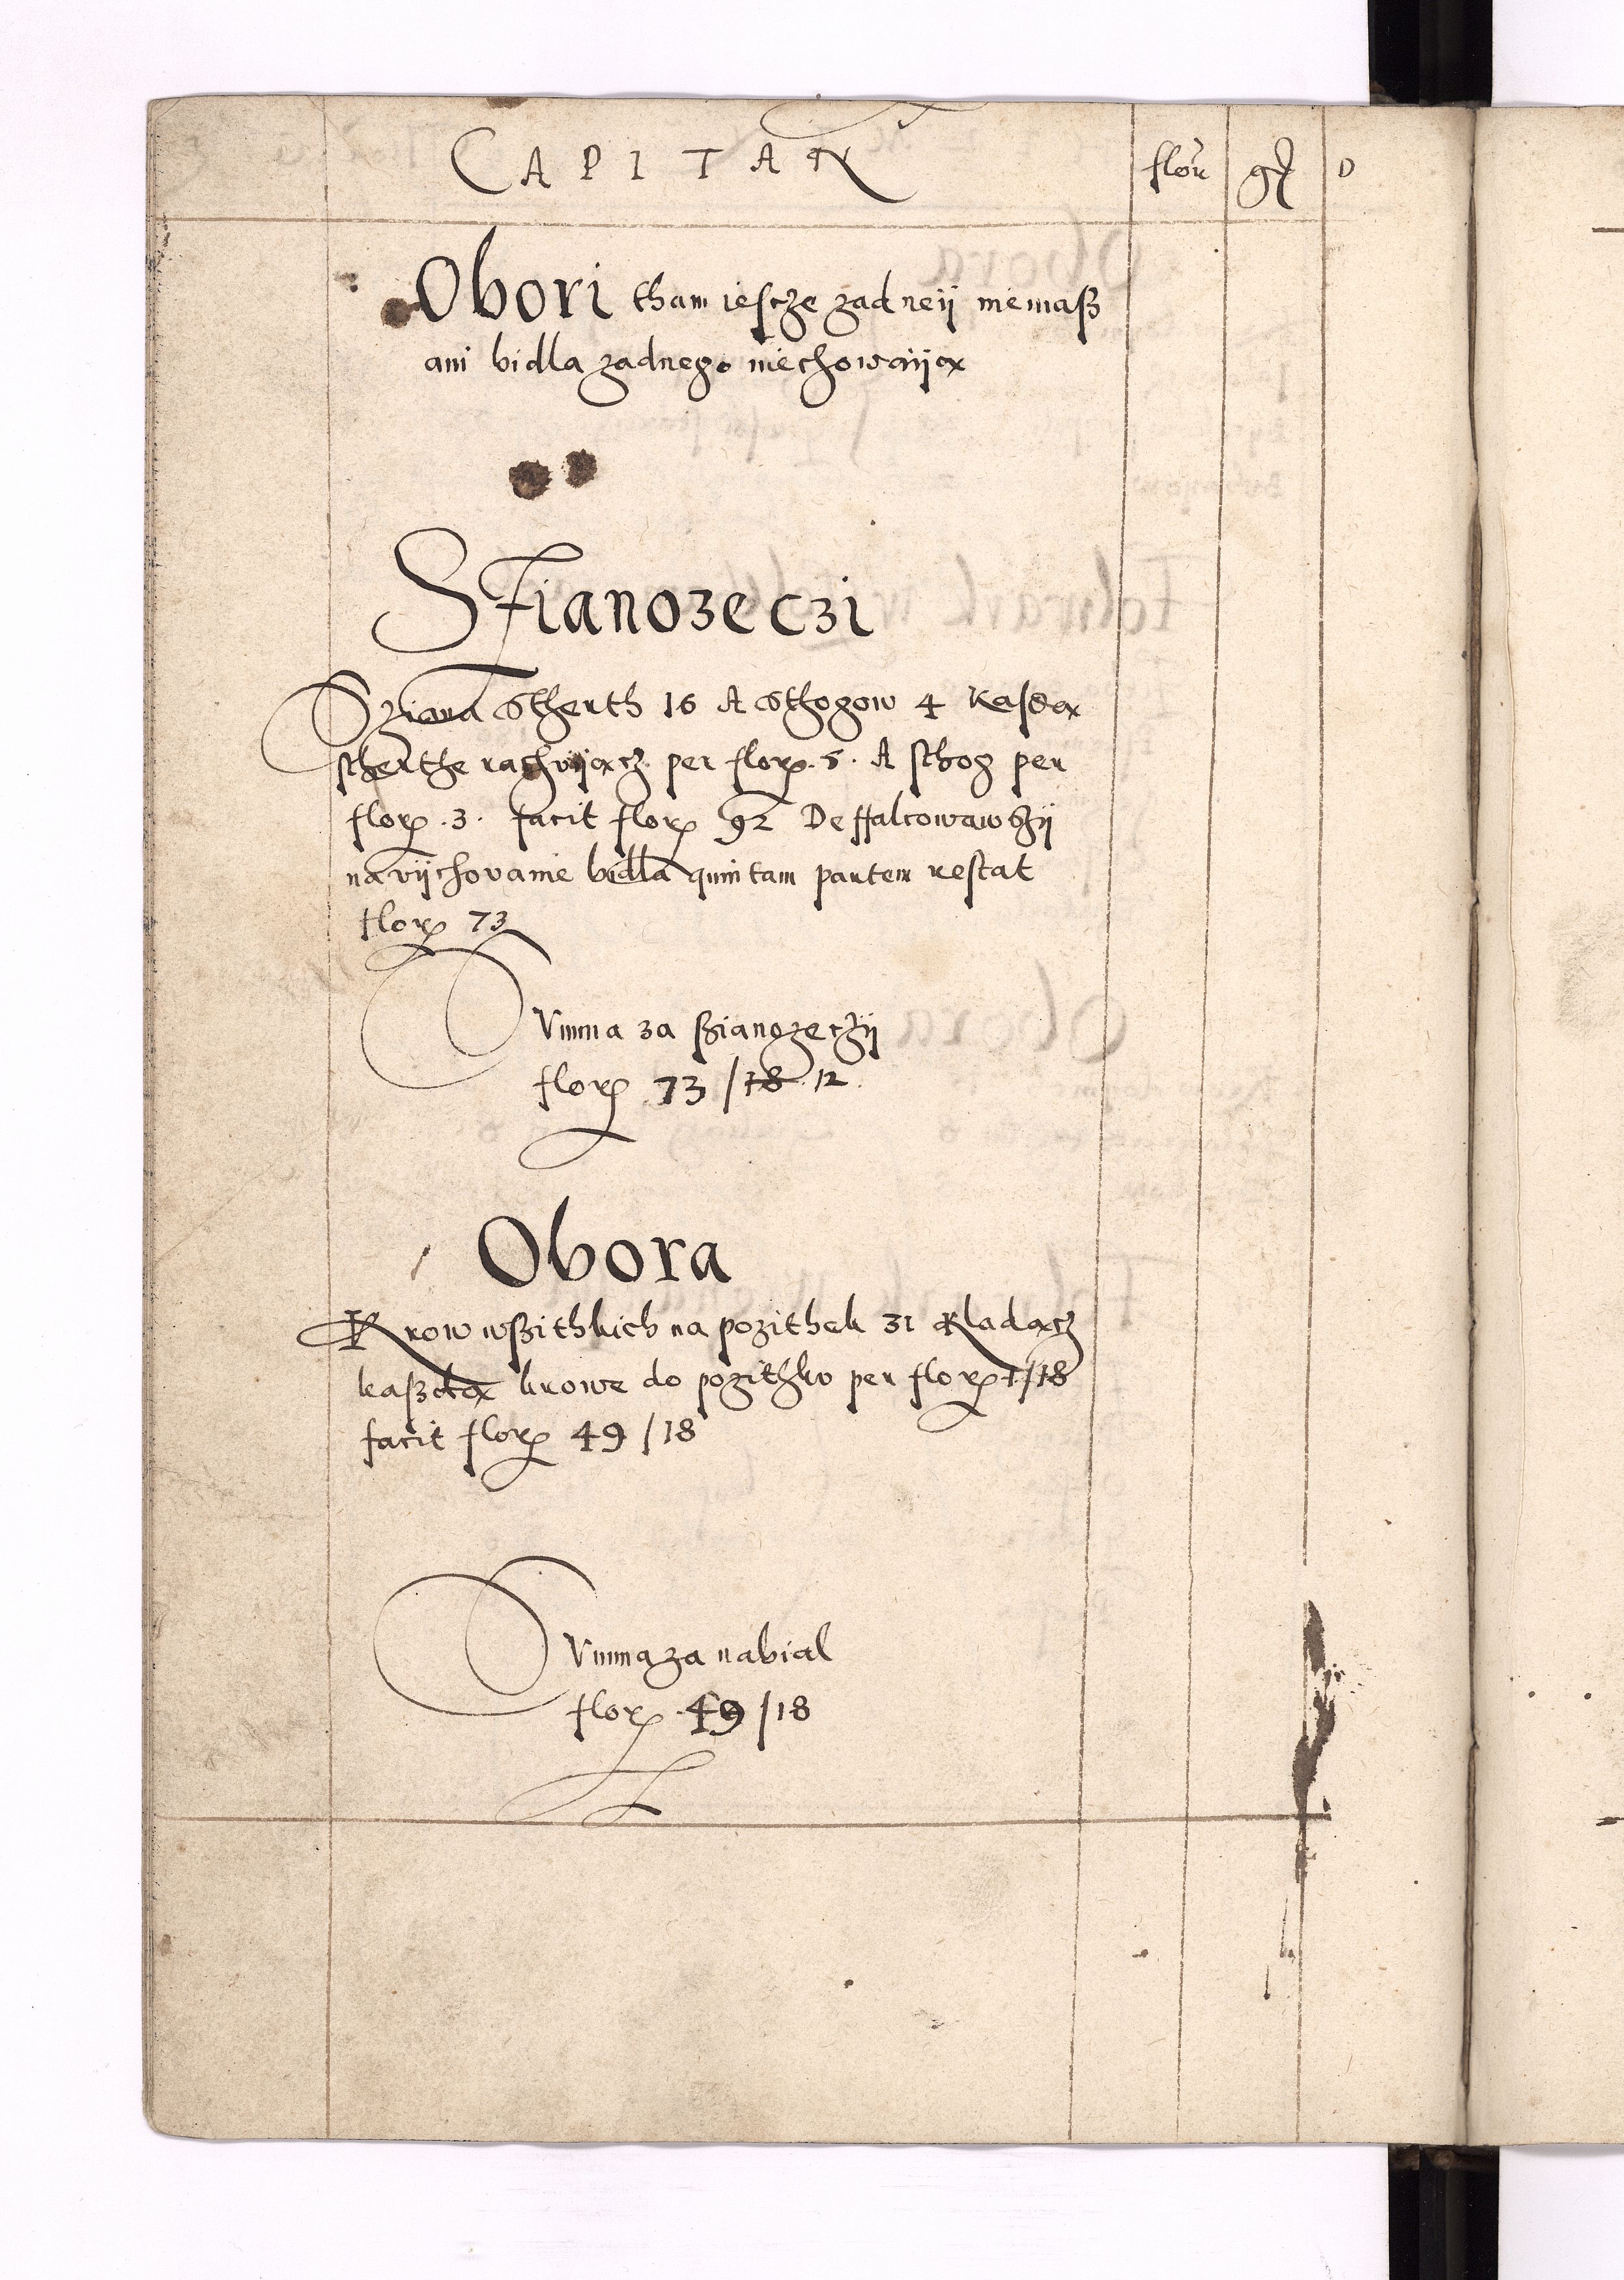 CAPITAN flor gr D
Obori tham iescze zadneÿ niemasz
ani bidla zadnego niechowaÿą
Sfianozeczi
Sziana Stherth 16 A Sthogow 4 Kasdą
stherthe rachuÿącz per flor. 5. A sthog per
flor. 3. facit flor 92 Deffalcowawszÿ
na vÿchovanie bidla quintam partem restat
flor 73
Summa za szianozeczÿ
flor 73 / 18 12
Obora
Krow wszithkich na pozithek 31 Kladącz
kaszdą krowe do pozithku per flor 1/18
facit flor 49/18
Summa za nabial
flor 49/18